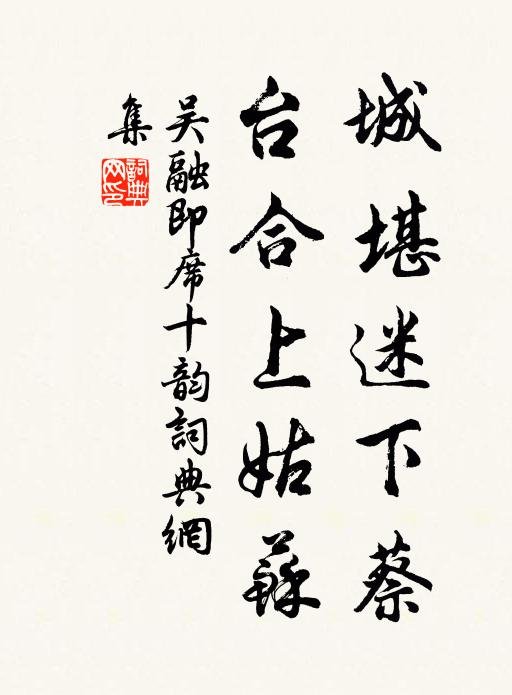 城堪迷下蔡
台合上姑蘇
吴融即席十韵詞典網
集
詞典
网印